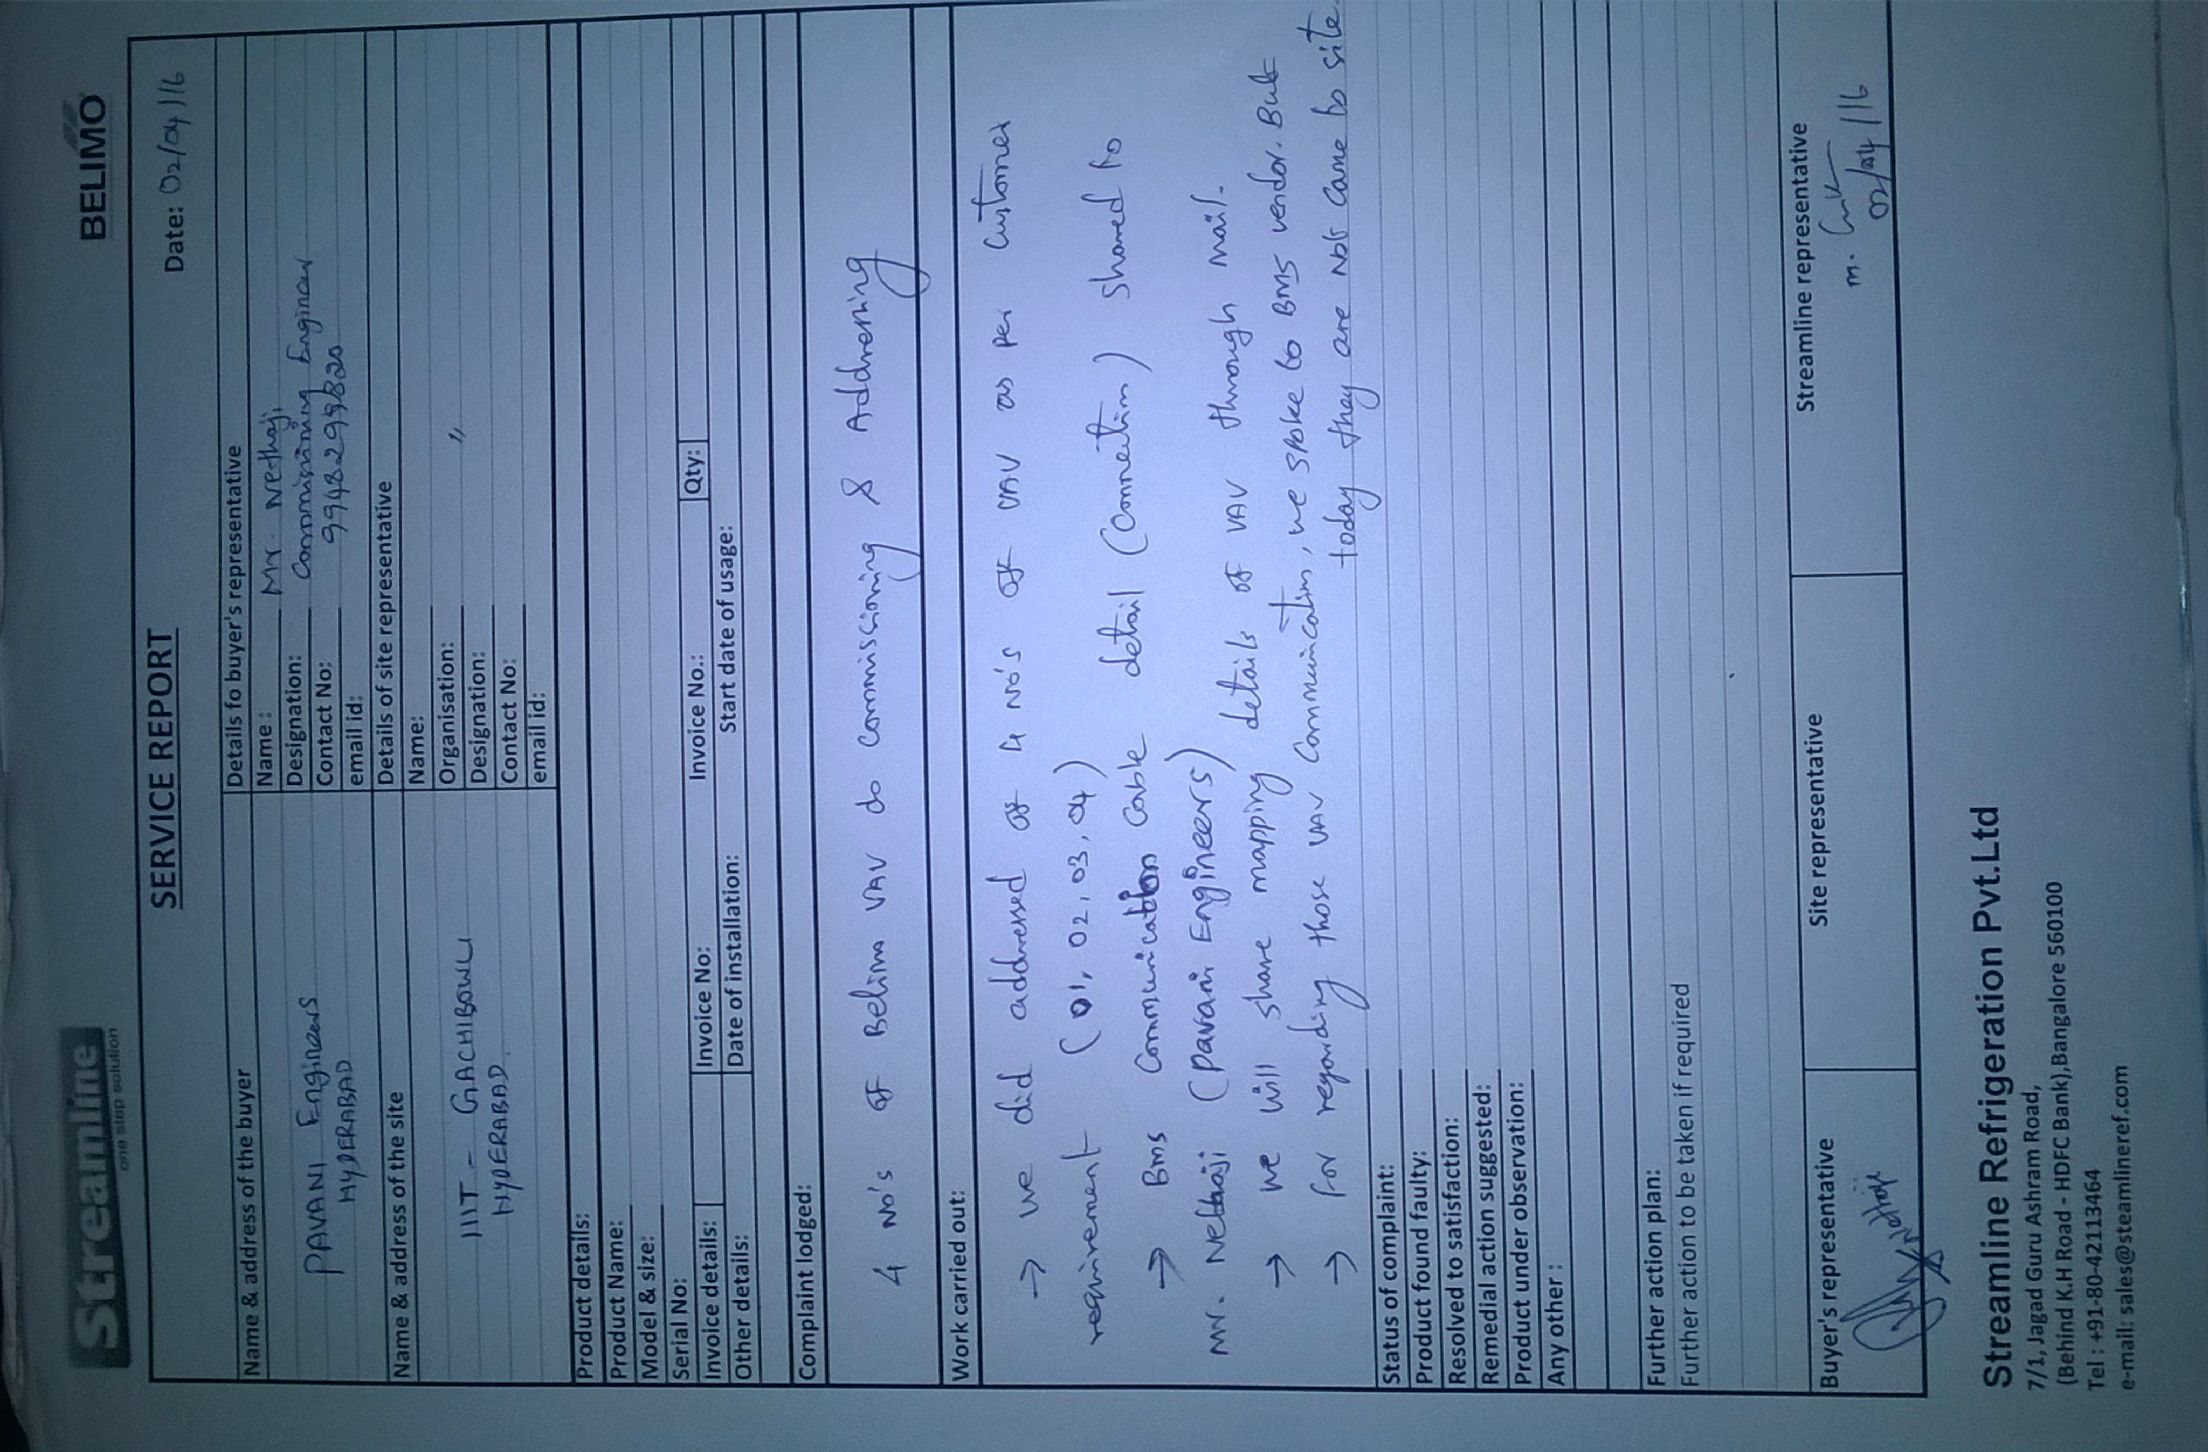 Streamline
one stop solution
BELIMO
SERVICE REPORT
Date: 02/04/16
Name & address of the buyer
PAVANI Engineers
HYDERABAD
Details fo buyer's representative
Name : Mr. Nethaji
Designation: Commissioning Engineer
Contact No: 9948299820
email id:
Name & address of the site
IIIT - GACHIBOWLI
HYDERABAD.
Details of site representative
Name:
Organisation:
Designation: "
Contact No:
email id:
Product details:
Product Name:
Model & size:
Serial No:
Invoice details: Invoice No: Invoice No.: Qty:
Other details: Date of installation: Start date of usage:
Complaint lodged:
4 No's of Belimo VAV do commissioning & Addressing
Work carried out:
→ we did addressed of 4 No's of VAV as per customer
requirement (01, 02, 03, 04)
→ BMS Communication Cable detail (Connection) shared to
Mr. Nethaji (pavani Engineers)
→ we will share mapping details of VAV through mail.
→ For regarding those VAV Communication, we spoke to BMS vendor. But
today they are not came to site.
Status of complaint:
Product found faulty:
Resolved to satisfaction:
Remedial action suggested:
Product under observation:
Any other :
Further action plan:
Further action to be taken if required
Buyer's representative
Site representative
Streamline representative
Nethaji
m.
02/04/16
Streamline Refrigeration Pvt.Ltd
7/1, Jagad Guru Ashram Road,
(Behind K.H Road - HDFC Bank),Bangalore 560100
Tel : +91-80-42113464
e-mail: sales@steamlineref.com